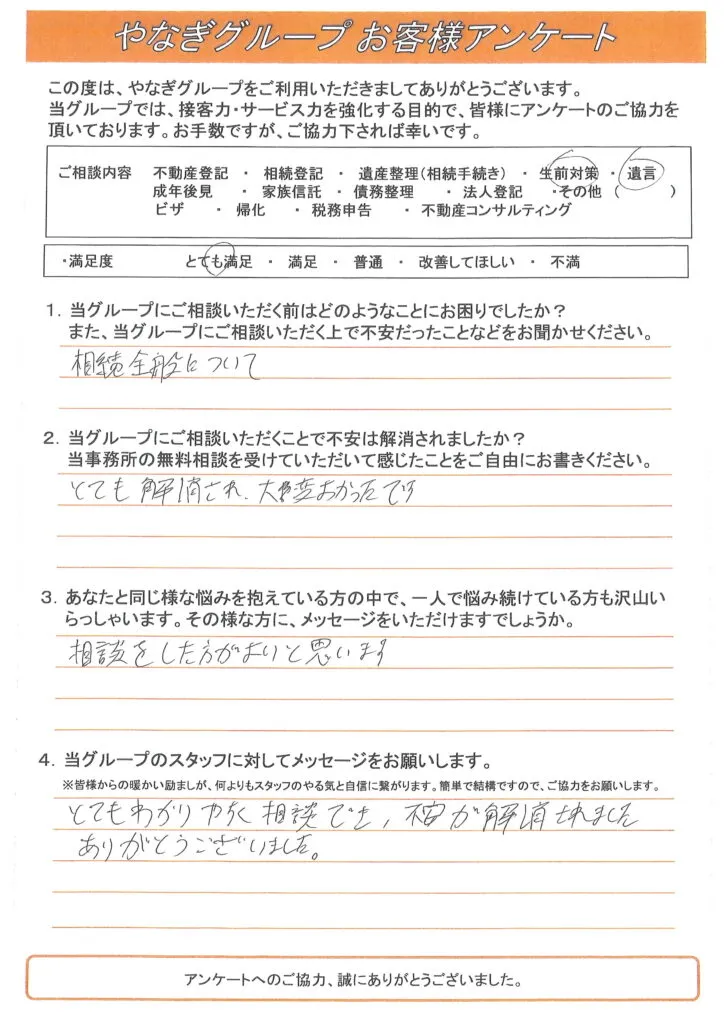 やなぎグループ お客様アンケート
この度は、やなぎグループをご利用いただきましてありがとうございます。
当グループでは、接客力・サービス力を強化する目的で、皆様にアンケートのご協力を
頂いております。お手数ですが、ご協力下されば幸いです。
ご相談内容 不動産登記 ・ 相続登記 ・ 遺産整理(相続手続き) ・ 生前対策 ・ 遺言
成年後見 ・ 家族信託 ・ 債務整理 ・ 法人登記 ・その他 ( )
ビザ ・ 帰化 ・ 税務申告 ・ 不動産コンサルティング
・満足度 とても満足 ・ 満足 ・ 普通 ・ 改善してほしい ・ 不満
1. 当グループにご相談いただく前はどのようなことにお困りでしたか?
また、当グループにご相談いただく上で不安だったことなどをお聞かせください。
相続全般について
2. 当グループにご相談いただくことで不安は解消されましたか?
当事務所の無料相談を受けていただいて感じたことをご自由にお書きください。
とても解消され、大変よかったです
3. あなたと同じ様な悩みを抱えている方の中で、一人で悩み続けている方も沢山い
らっしゃいます。その様な方に、メッセージをいただけますでしょうか。
相談をした方がよいと思います
4. 当グループのスタッフに対してメッセージをお願いします。
※皆様からの暖かい励ましが、何よりもスタッフのやる気と自信に繋がります。簡単で結構ですので、ご協力をお願いします。
とてもわかりやすく相談でき、不安が解消されました
ありがとうございました。
アンケートへのご協力、誠にありがとうございました。